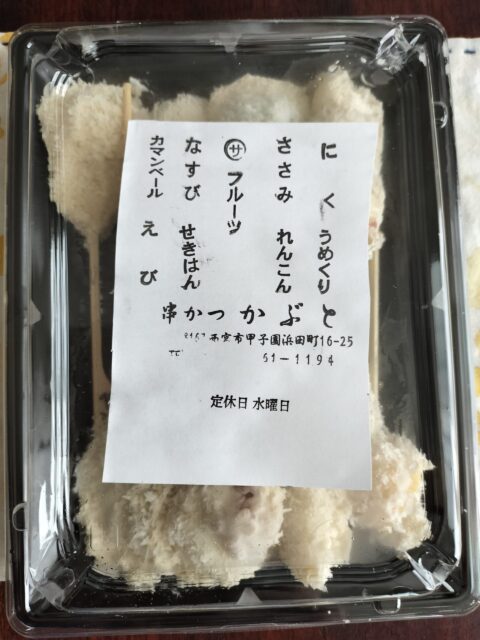 にく うめくり
ささみ れんこん
サ フルーツ
なすび せきはん
カマンベール えび
串かつ かぶと
西宮市甲子園浜田町16-25
61-1194
定休日 水曜日